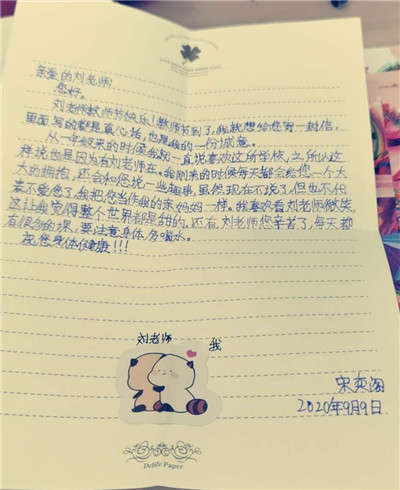 亲爱的刘老师:
您好。
刘老师教师节快乐!教师节到了,我就想给您写一封信,
里面写的都是真心话,也是我的一份诚意。
从一年级来的时候我就一直说喜欢这所学校,之所以这
样说也是因为有刘老师在。我刚来的时候每天都会给您一个大
大的拥抱,还会和您说一些趣事,虽然现在不说了,但也不代
表不爱您了,我把您当作我的亲妈妈一样。我喜欢看刘老师微笑,
这让我觉得整个世界都是甜的。还有,刘老师您辛苦了,每天都
有很多的课,要注意身体,多喝水。
祝您身体健康!!!
刘老师 我
宋奕阁
2020年9月9日
Delife Paper